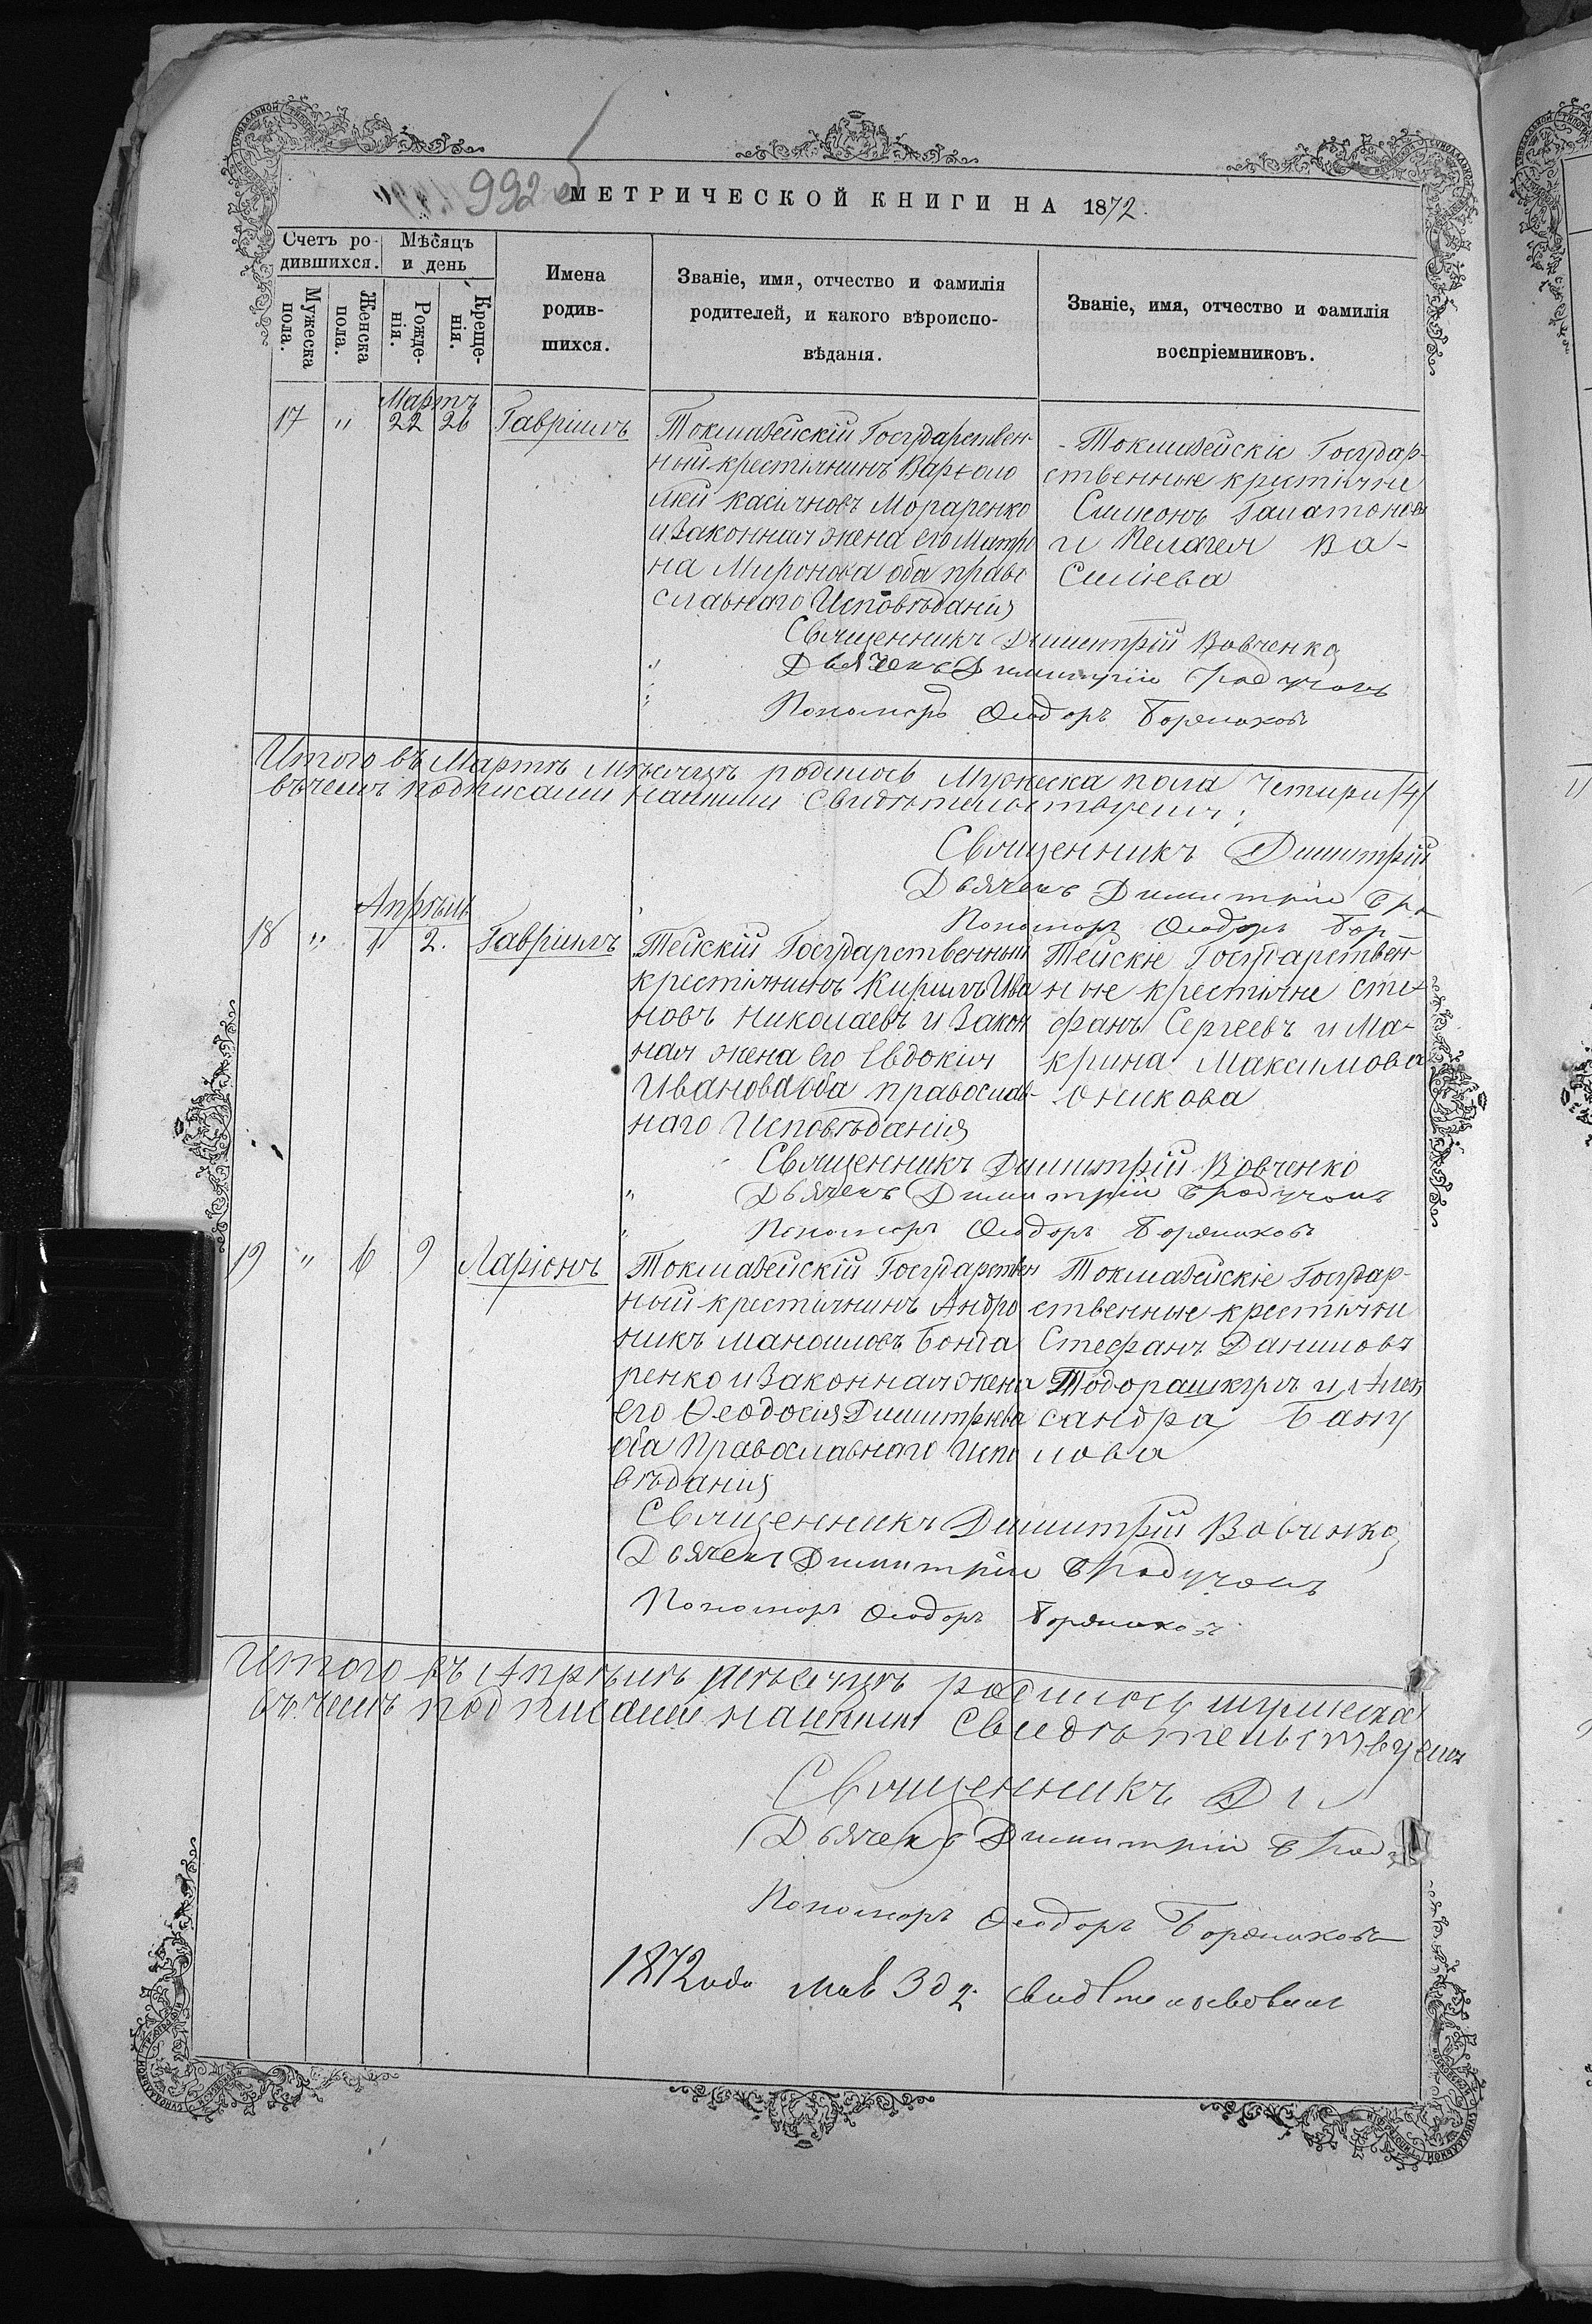 992
МЕТРИЧЕСКОЙ КНИГИ НА 1872.
Счетъ ро-
дившихся.
Мѣсяцъ
и день
Мужеска
пола.
Женска
пола.
Рожде-
нія.
Креще-
нія.
Имена
родив-
шихся.
Званіе, имя, отчество и фамилія
родителей, и какого вѣроиспо-
вѣданія.
Званіе, имя, отчество и фамилія
воспріемниковъ.
Мартъ
17 " 22 26 Гавріилъ
Токмазейскій Государствен-
ный крестіянинъ Варѳоло
мей Касіяновъ Мораренко
и Законная жена его Матро
на Миронова оба право
славнаго Исповѣданія
- Токмазейскіе Государ-
ственные крестіяне
Симіонъ
и Пелагея Ва-
силіева
Священникъ Димитрій Вовченко
Дьячекъ Димитрій
Пономарь Ѳеодоръ
Итого въ Мартѣ Мѣсяцѣ родилось Мужеска пола Четыри /4/
въ чемъ подписами нашими Свидѣтельствуемъ:
Священникъ Димитрій
Дьячекъ Димитрій
Пономарь Ѳеодоръ Бор-
Апрѣль
18 " 1 2. Гавріилъ
Тейскій Государственный
крестіянинъ Кирилъ Ива
новъ Николаевъ и Закон
ная жена его Евдокія
Иванова оба православ-
наго Исповѣданія
Тейскіе Государствен
ные крестіяне Сте-
фанъ Сергеевъ и Ма-
крина Максимова
Священникъ Димитрій Вовченко
Дьячекъ Димитрій
Пономарь Ѳеодоръ
19 " 6 9 Ларіонъ
Токмазейскій Государствен
ный крестіянинъ Андро
никъ Маноиловъ Бонда
ренко и Законная жена
его Ѳеодосія Димитріева
оба Православнаго Испо
вѣданія
Токмазейскіе Государ-
ственные крестіяни
Стефанъ Даниловъ
Тодорашкулъ и Алек
сандра Бану
лова
Священникъ Димитрій Вовченко
Дьячекъ Димитрій
Пономарь Ѳеодоръ
Итого въ Апрѣлѣ мѣсяцѣ родилось мужеска
въ чемъ подписами нашими Свидѣтельствуемъ
Священникъ Ди
Дьячекъ Димитрій
Пономарь Ѳеодоръ
1872 года